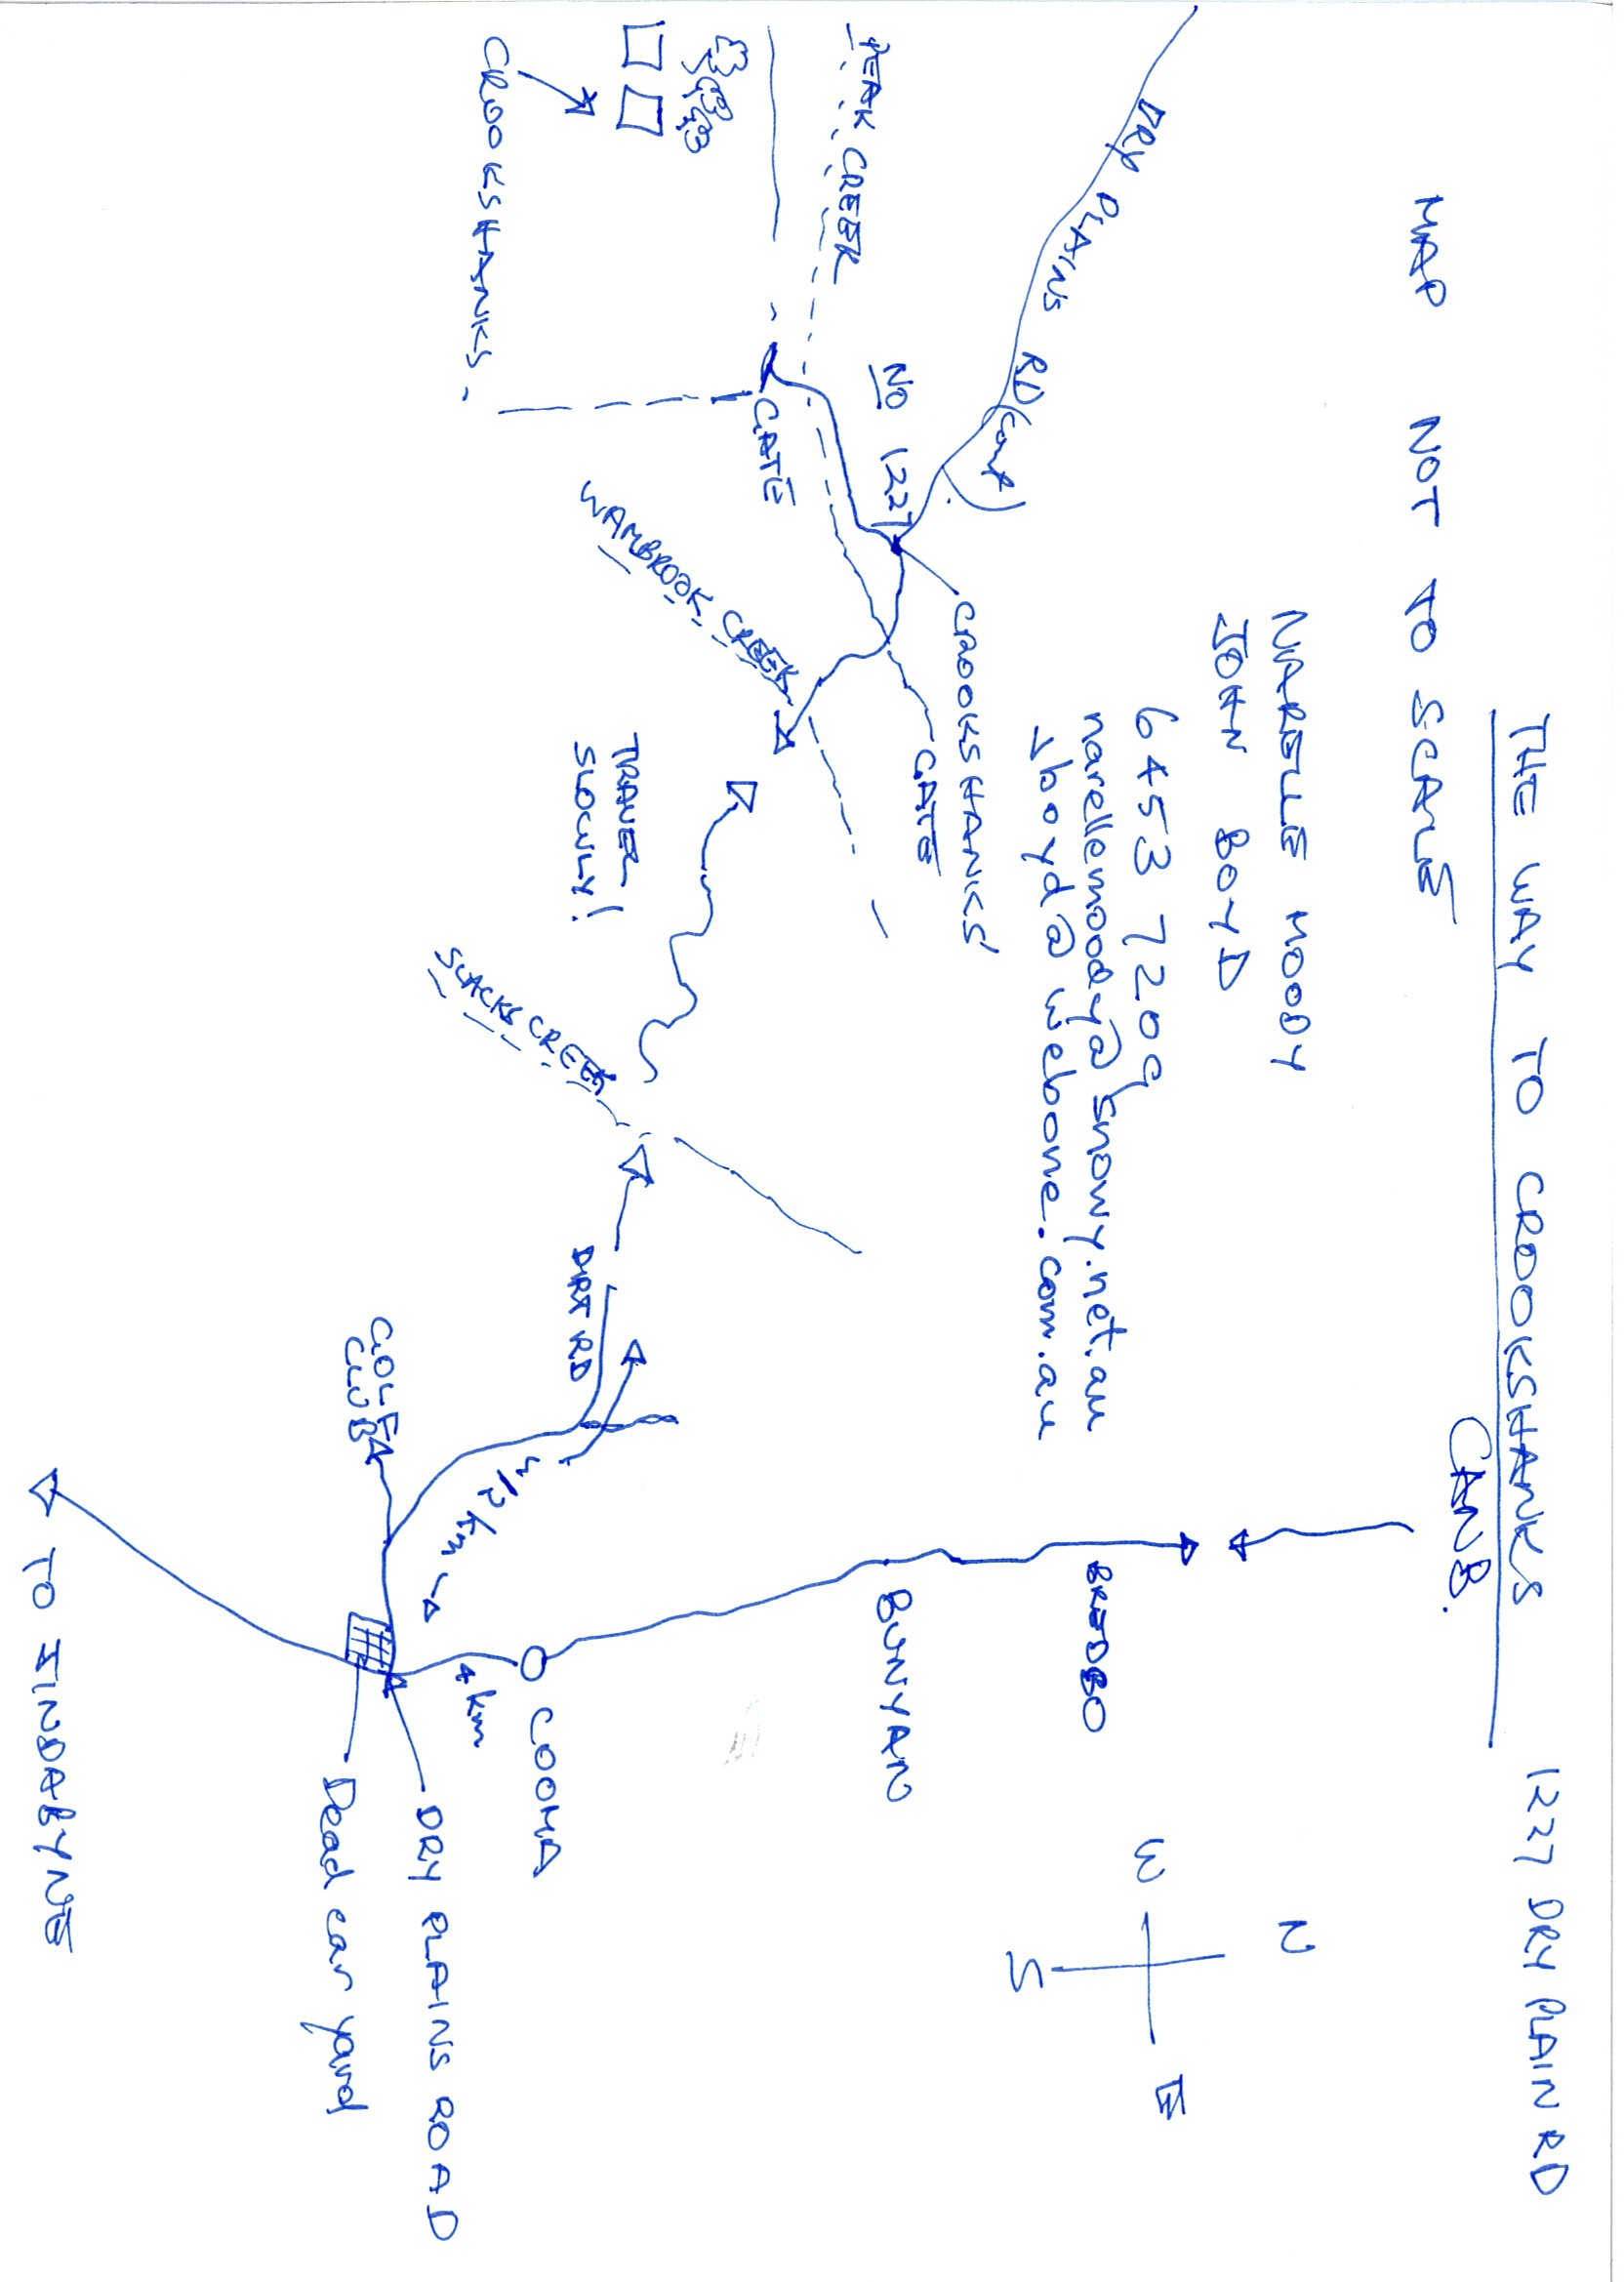 THE WAY TO CROOKSHANKS
1227 DRY PLAIN RD
MAP NOT TO SCALE
CANB.
NARELLE MOODY
JOHN BOYD
6453 7209
narellemoody@snowy.net.au
vboyd@webone.com.au
N
W
E
S
DRY PLAINS RD (cont)
NO 1227
CROOKSHANKS'
GATE
PEAK CREEK
GATE
CROOKSHANKS.
WAMBROOK CREEK
TRAVEL
SLOWLY!
SLACKS CREEK
DIRT RD
BREDBO
BUNYAN
COOMA
4 km
DRY PLAINS ROAD
Dead car yard
GOLF
CLUB
TO JINDABYNE